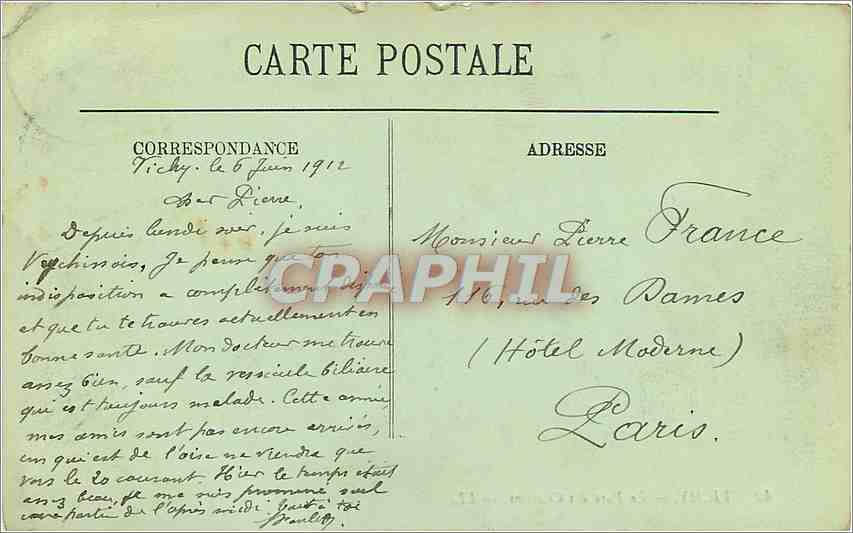 CARTE POSTALE
CORRESPONDANCE
Vichy. le 6 Juin 1912
Cher Pierre,
Depuis lundi soir, je suis
Vychissois, Je pense que ton
indisposition a complètement
et que tu te trouves actuellement en
bonne santé. Mon docteur me trouve
assez bien, sauf la vésicule biliaire
qui est toujours malade. Cette année,
mes amis sont pas encore arrivés,
un qui est de l'oise ne viendra que
vers le 20 courant. Hier le temps était
assez beau, je me suis promené seul
une partie de l'après midi. tout à toi
ADRESSE
Monsieur Pierre France
116, rue des Dames
(Hôtel Moderne)
Paris.
CPARHIL